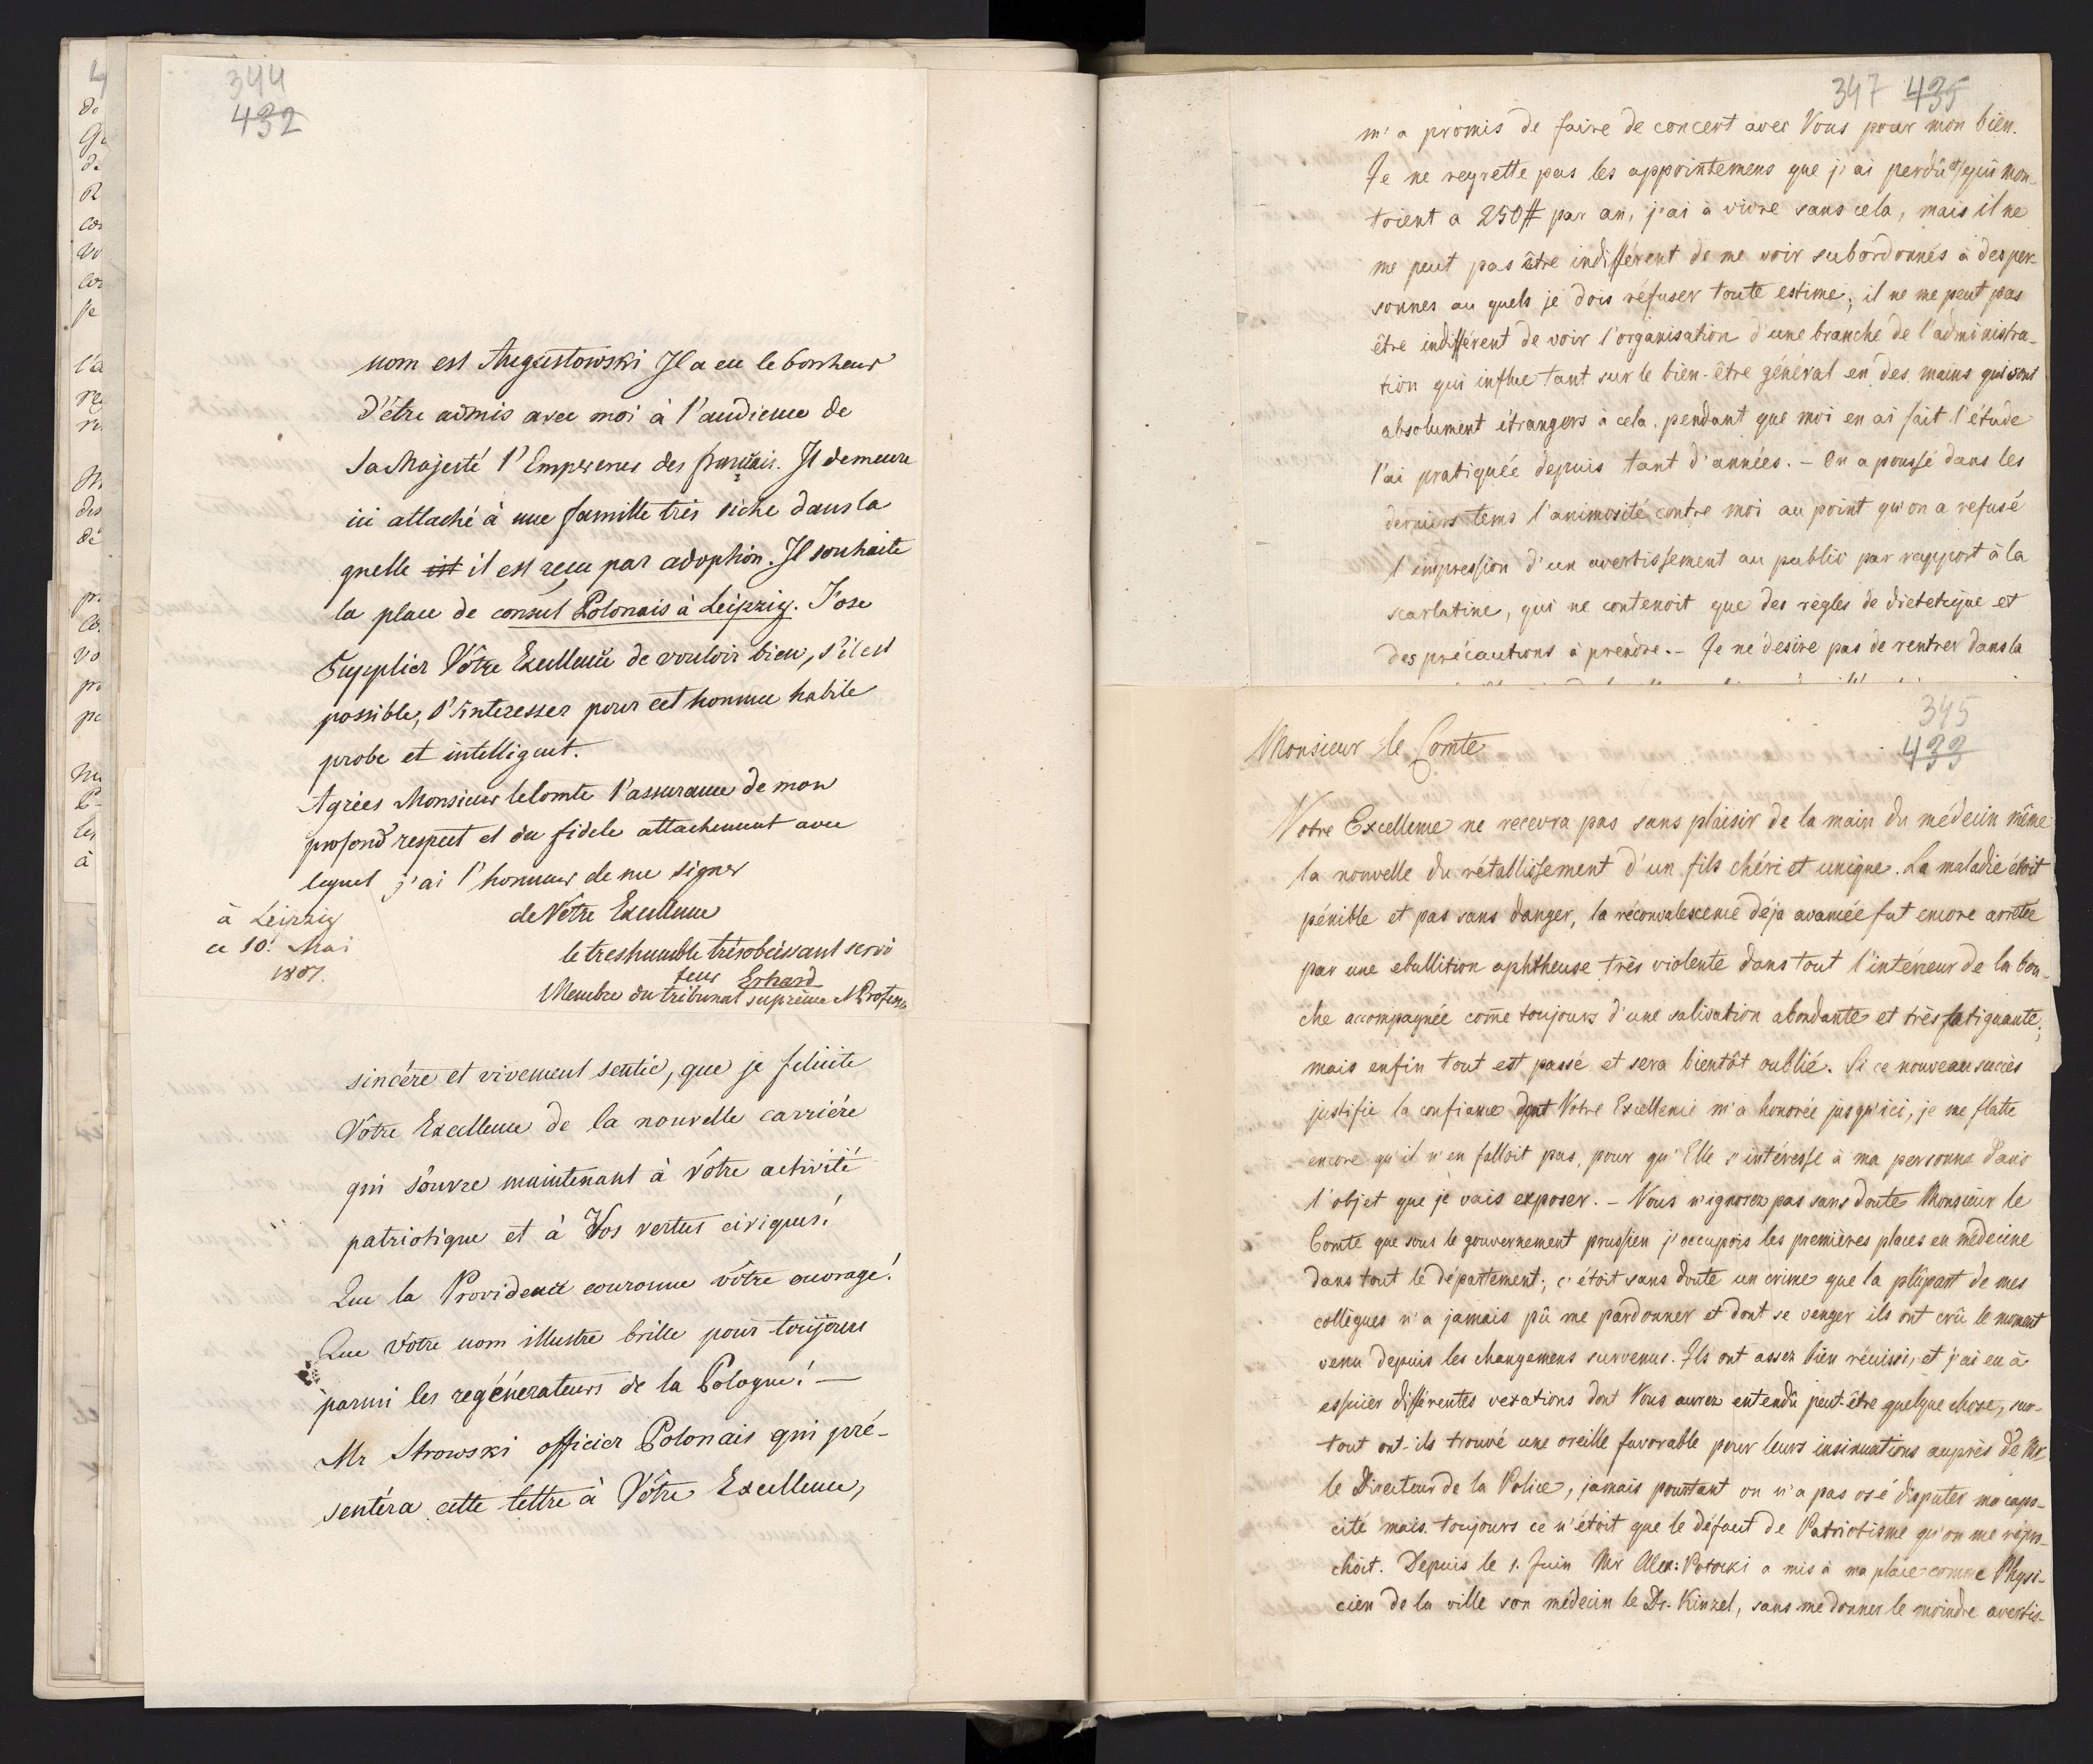 344
432
nom est Augustowski Il a eu le bonheur
d'être admis avec moi à l'audience de
Sa Majesté l'Empereur des français. Il demeure
ici attaché à une famille très riche dans la
quelle ist il est reçu par adoption. Il souhaite
la place de consul Polonais à Leipzig. J'ose
Supplier Vôtre Excellence de vouloir bien, s'il est
possible, s'interesser pour cet homme habile
probe et intelligent.
Agrées Monsieur le Comte l'assurance de mon
profond respect et du fidele attachement avec
lequel j'ai l'honneur de me signer
de Vôtre Excellence
à Leipzig
ce 10. Mai
1807.
le treshumble trésobeissant servi
teur Erhard
Membre du tribunal suprème Professeur
sincére et vivement sentie, que je felicite
Vôtre Excellence de la nouvelle carriére
qui s'ouvre maintenant à vôtre activité
patriotique et à Vos vertus civiques!
Que la Providence couronne vôtre ouvrage!
Que vôtre nom illustre brille pour toujours
parmi les regénerateurs de la Pologne! —
Mr Strowski officier Polonais qui pré-
sentéra cette lettre à Vôtre Excellence,
347 435
m'a promis de faire de concert avec Vous pour mon bien.
Je ne regrette pas les appointemens que j'ai perdû et qui mon-
toient a 250# par an, j'ai à vivre sans cela, mais il ne
me peut pas être indifférent de me voir subordonnés à des per-
sonnes au quels je dois réfuser toute estime; il ne me peut pas
être indifférent de voir l'organisation d'une branche de l'administra-
tion qui influe tant sur le bien-être général en des mains qui sont
absolument étrangers à cela, pendant que moi en ai fait l'étude
l'ai pratiquée depuis tant d'années. – On a poussé dans les
derniers tems l'animosité contre moi au point qu'on a refusé
l'impression d'un avertissement au public par rapport à la
scarlatine, qui ne contenoit que des règles de dietetique et
des précautions à prendre. – Je ne désire pas de rentrer dans la
345
433
Monsieur le Comte
Votre Excellence ne recevra pas sans plaisir de la main du médecin même
la nouvelle du rétablissement d'un fils chéri et unique. La maladie étoit
pénible et pas sans danger, la réconvalescence déja avancée fut encore arretée
par une ebullition aphtheuse très violente dans tout l'intérieur de la bou-
che accompagnée come toujours d'une salivation abondante et très fatiguante;
mais enfin tout est passé et sera bientôt oublié. Si ce nouveau succès
justifie la confiance dont Votre Excellence m'a honorée jusqu'ici, je me flatte
encore qu'il n'en falloit pas, pour qu'Elle s'intéresse à ma personne dans
l'objet que je vais exposer. – Vous n'ignorez pas sans doute Monsieur le
Comte que sous le gouvernement prussien j'occupois les premières places en médecine
dans tout le département; c'étoit sans doute un crime que la plûpart de mes
collègues n'a jamais pû me pardonner et dont se venger ils ont crû le moment
venu depuis les changemens survenus. Ils ont assez bien réussi, et j'ai eu à
essuier différentes vexations dont Vous aurez entendû peut-être quelque chose, sur-
tout ont-ils trouvé une oreille favorable pour leurs insinuations auprès de Mr
le Directeur de la Police, jamais pourtant on n'a pas osé disputer ma capa-
cité mais toujours ce n'étoit que le défaut de Patriotisme qu'on me répro-
choit. Depuis le 1. Juin Mr Alex: Potocki a mis à ma place comme Physi-
cien de la ville son médecin le Dr. Kinzel, sans me donner le moindre avertis-